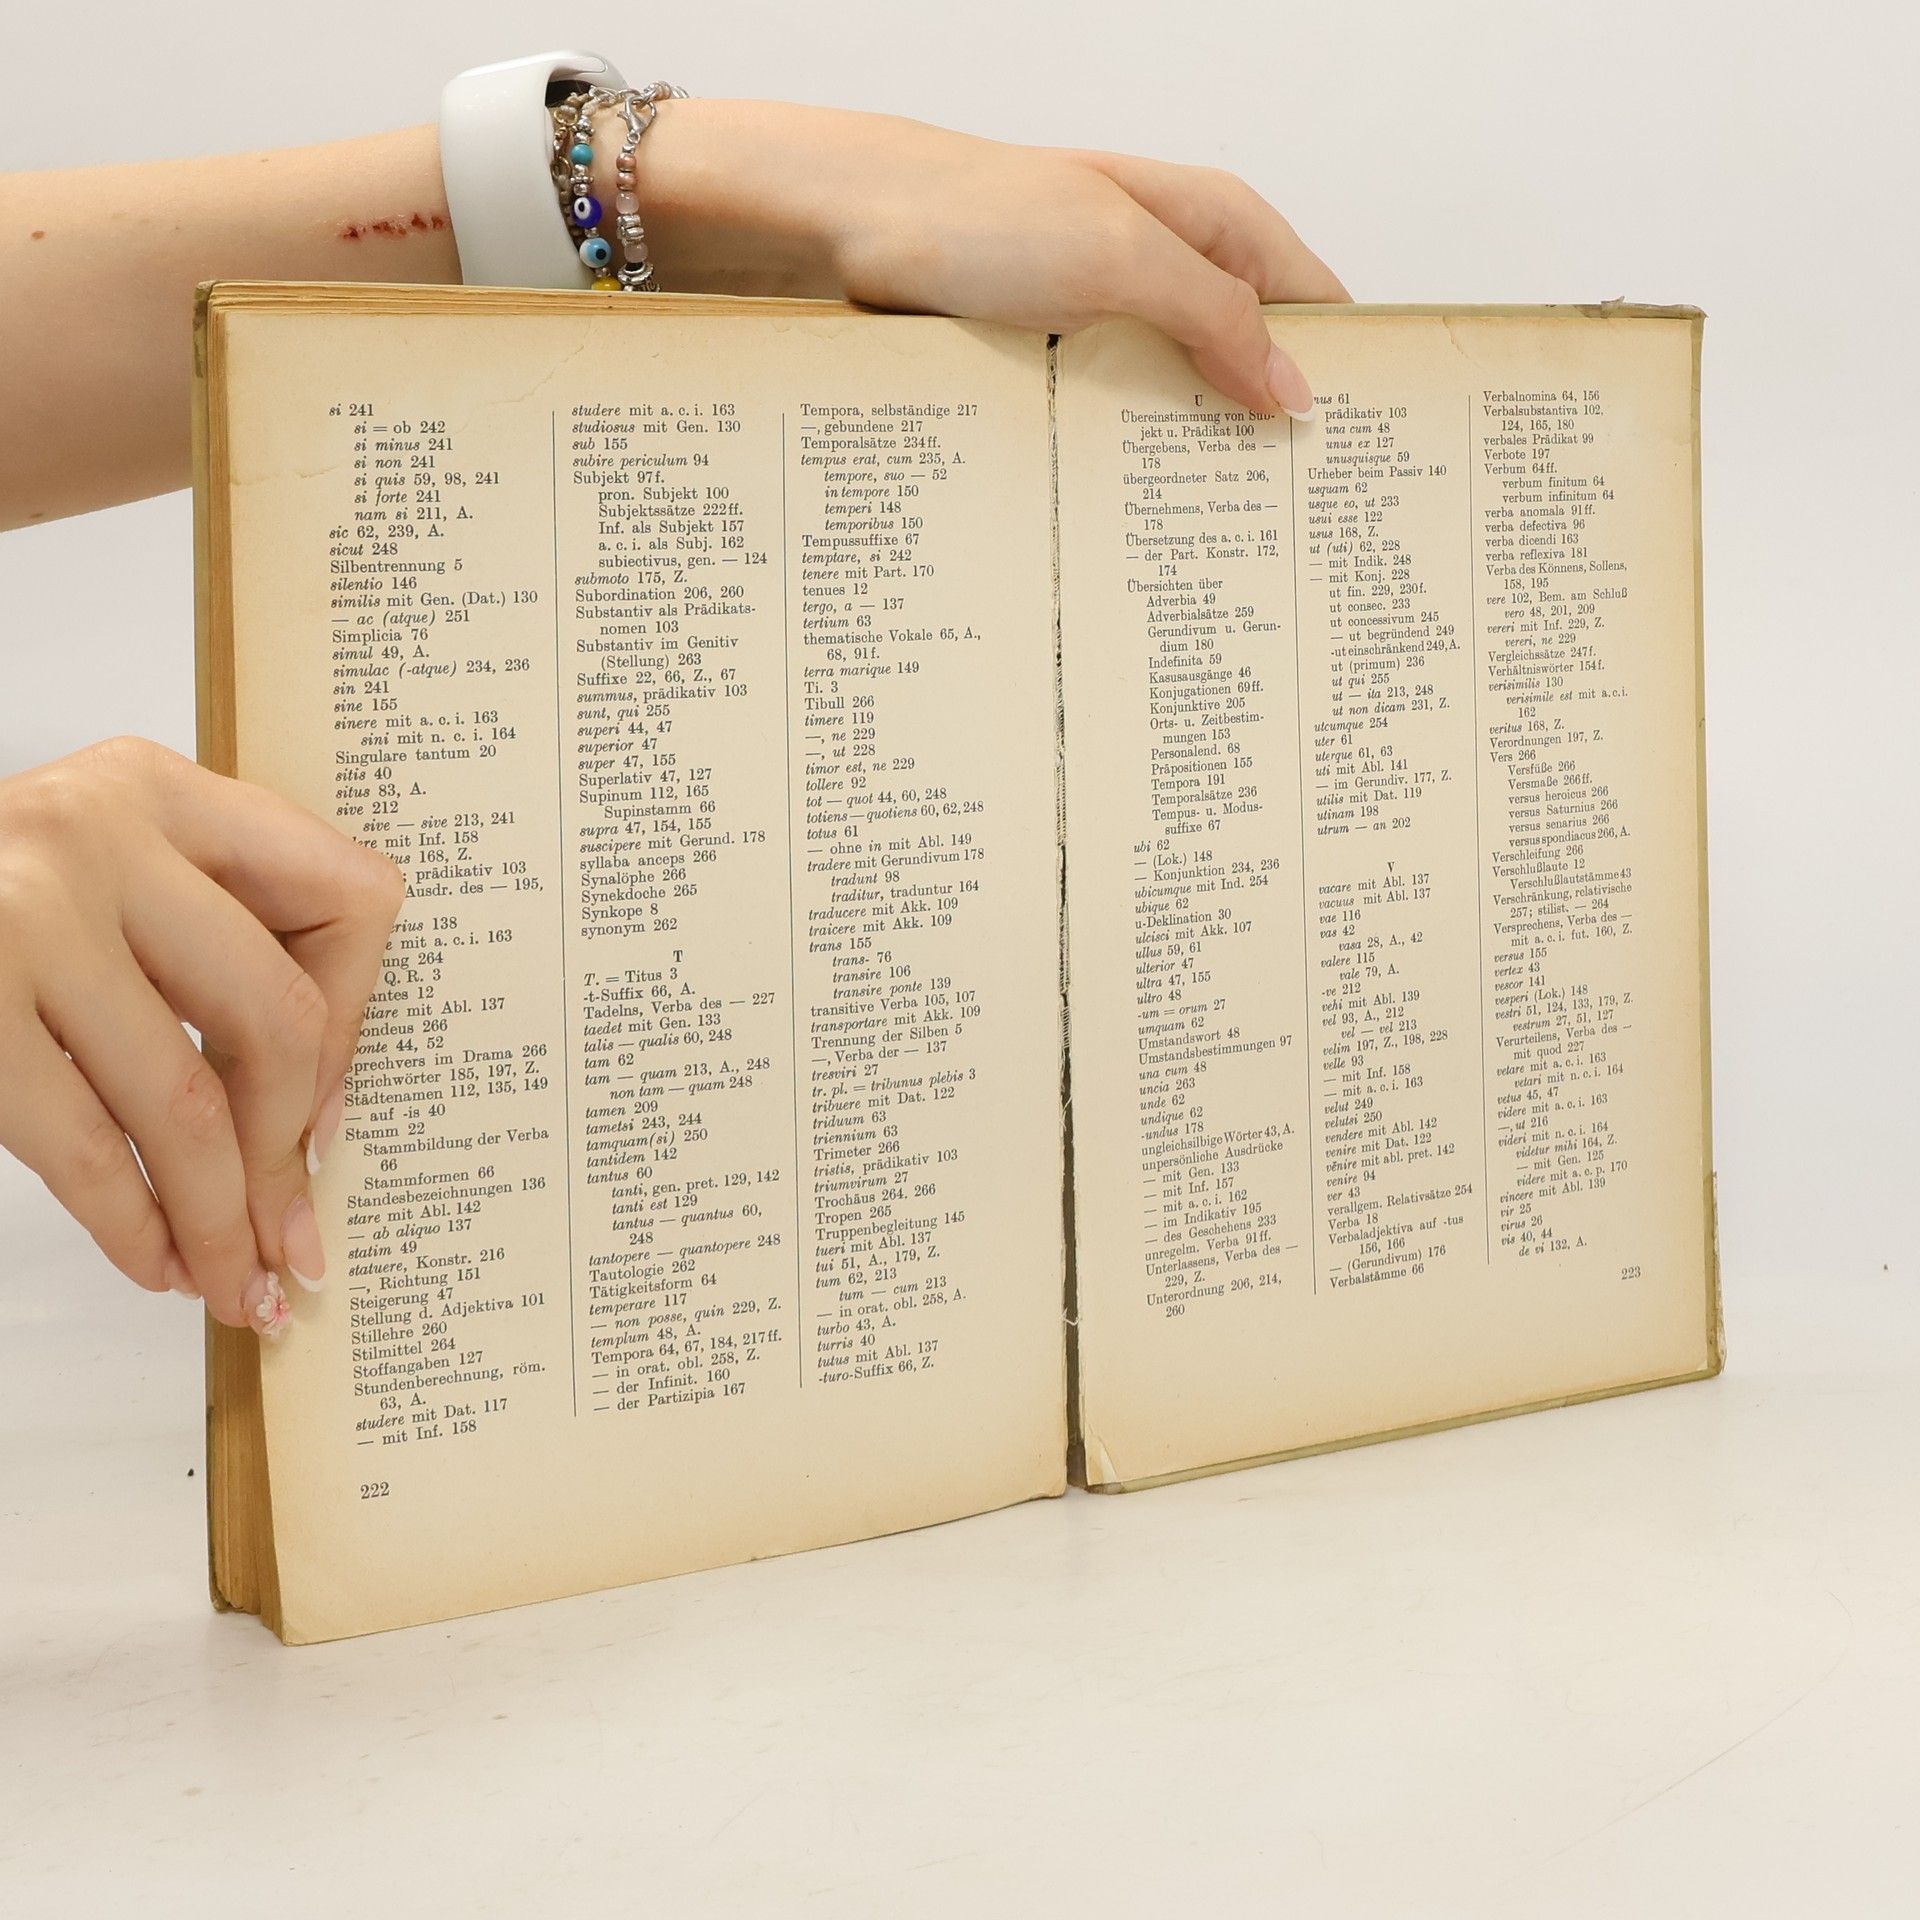 si 241
si = ob 242
si minus 241
si non 241
si quis 59, 98, 241
si forte 241
nam si 211, A.
sic 62, 239, A.
sicut 248
Silbentrennung 5
silentio 146
similis mit Gen. (Dat.) 130
— ac (atque) 251
Simplicia 76
simul 49, A.
simulac (-atque) 234, 236
sin 241
sine 155
sinere mit a. c. i. 163
sini mit n. c. i. 164
Singulare tantum 20
sitis 40
situs 83, A.
sive 212
sive — sive 213, 241
mit Inf. 158
168, Z.
; prädikativ 103
Ausdr. des — 195,
138
mit a. c. i. 163
264
Q. R. 3
12
mit Abl. 137
266
44, 52
Sprechvers im Drama 266
Sprichwörter 185, 197, Z.
Städtenamen 112, 135, 149
— auf -is 40
Stamm 22
Stammbildung der Verba
66
Stammformen 66
Standesbezeichnungen 136
stare mit Abl. 142
— ab aliquo 137
statim 49
statuere, Konstr. 216
—, Richtung 151
Steigerung 47
Stellung d. Adjektiva 101
Stillehre 260
Stilmittel 264
Stoffangaben 127
Stundenberechnung, röm.
63, A.
studere mit Dat. 117
— mit Inf. 158
studere mit a. c. i. 163
studiosus mit Gen. 130
sub 155
subire periculum 94
Subjekt 97f.
pron. Subjekt 100
Subjektssätze 222ff.
Inf. als Subjekt 157
a. c. i. als Subj. 162
subiectivus, gen. — 124
submoto 175, Z.
Subordination 206, 260
Substantiv als Prädikats-
nomen 103
Substantiv im Genitiv
(Stellung) 263
Suffixe 22, 66, Z., 67
summus, prädikativ 103
sunt, qui 255
superi 44, 47
superior 47
super 47, 155
Superlativ 47, 127
Supinum 112, 165
Supinstamm 66
supra 47, 154, 155
suscipere mit Gerund. 178
syllaba anceps 266
Synalöphe 266
Synekdoche 265
Synkope 8
synonym 262
T
T. = Titus 3
-t-Suffix 66, A.
Tadelns, Verba des — 227
taedet mit Gen. 133
talis — qualis 60, 248
tam 62
tam — quam 213, A., 248
non tam — quam 248
tamen 209
tametsi 243, 244
tamquam(si) 250
tantidem 142
tantus 60
tanti, gen. pret. 129, 142
tanti est 129
tantus — quantus 60,
248
tantopere — quantopere 248
Tautologie 262
Tätigkeitsform 64
temperare 117
— non posse, quin 229, Z.
templum 48, A.
Tempora 64, 67, 184, 217ff.
— in orat. obl. 258, Z.
— der Infinit. 160
— der Partizipia 167
Tempora, selbständige 217
—, gebundene 217
Temporalsätze 234ff.
tempus erat, cum 235, A.
tempore, suo — 52
in tempore 150
temperi 148
temporibus 150
Tempussuffixe 67
temptare, si 242
tenere mit Part. 170
tenues 12
tergo, a — 137
tertium 63
thematische Vokale 65, A.,
68, 91f.
terra marique 149
Ti. 3
Tibull 266
timere 119
—, ne 229
—, ut 228
timor est, ne 229
tollere 92
tot — quot 44, 60, 248
totiens — quotiens 60, 62, 248
totus 61
— ohne in mit Abl. 149
tradere mit Gerundivum 178
tradunt 98
traditur, traduntur 164
traducere mit Akk. 109
traicere mit Akk. 109
trans 155
trans- 76
transire 106
transire ponte 139
transitive Verba 105, 107
transportare mit Akk. 109
Trennung der Silben 5
—, Verba der — 137
tresviri 27
tr. pl. = tribunus plebis 3
tribuere mit Dat. 122
triduum 63
triennium 63
Trimeter 266
tristis, prädikativ 103
triumvirum 27
Trochäus 264. 266
Tropen 265
Truppenbegleitung 145
tueri mit Abl. 137
tui 51, A., 179, Z.
tum 62, 213
tum — cum 213
— in orat. obl. 258, A.
turbo 43, A.
turris 40
tutus mit Abl. 137
-turo-Suffix 66, Z.
222
U
Übereinstimmung von Sub-
jekt u. Prädikat 100
Übergebens, Verba des —
178
übergeordneter Satz 206,
214
Übernehmens, Verba des —
178
Übersetzung des a. c. i. 161
— der Part. Konstr. 172,
174
Übersichten über
Adverbia 49
Adverbialsätze 259
Gerundivum u. Gerun-
dium 180
Indefinita 59
Kasusausgänge 46
Konjugationen 69ff.
Konjunktive 205
Orts- u. Zeitbestim-
mungen 153
Personalend. 68
Präpositionen 155
Tempora 191
Temporalsätze 236
Tempus- u. Modus-
suffixe 67
ubi 62
— (Lok.) 148
— Konjunktion 234, 236
ubicumque mit Ind. 254
ubique 62
u-Deklination 30
ulcisci mit Akk. 107
ullus 59, 61
ulterior 47
ultra 47, 155
ultro 48
-um = orum 27
umquam 62
Umstandswort 48
Umstandsbestimmungen 97
una cum 48
uncia 263
unde 62
undique 62
-undus 178
ungleichsilbige Wörter 43, A.
unpersönliche Ausdrücke
— mit Gen. 133
— mit Inf. 157
— mit a. c. i. 162
— im Indikativ 195
— des Geschehens 233
unregelm. Verba 91ff.
Unterlassens, Verba des —
229, Z.
Unterordnung 206, 214,
260
61
prädikativ 103
una cum 48
unus ex 127
unusquisque 59
Urheber beim Passiv 140
usquam 62
usque eo, ut 233
usui esse 122
usus 168, Z.
ut (uti) 62, 228
— mit Indik. 248
— mit Konj. 228
ut fin. 229, 230f.
ut consec. 233
ut concessivum 245
— ut begründend 249
-ut einschränkend 249, A.
ut (primum) 236
ut qui 255
ut — ita 213, 248
ut non dicam 231, Z.
utcumque 254
uter 61
uterque 61, 63
uti mit Abl. 141
— im Gerundiv. 177, Z.
utilis mit Dat. 119
utinam 198
utrum — an 202
V
vacare mit Abl. 137
vacuus mit Abl. 137
vae 116
vas 42
vasa 28, A., 42
valere 115
vale 79, A.
-ve 212
vehi mit Abl. 139
vel 93, A., 212
vel — vel 213
velim 197, Z., 198, 228
velle 93
— mit Inf. 158
— mit a. c. i. 163
velut 249
velutsi 250
vendere mit Abl. 142
venire mit Dat. 122
vēnire mit abl. pret. 142
venire 94
ver 43
verallgem. Relativsätze 254
Verba 18
Verbaladjektiva auf -tus
156, 166
— (Gerundium) 176
Verbalstämme 66
Verbalnomina 64, 156
Verbalsubstantiva 102,
124, 165, 180
verbales Prädikat 99
Verbote 197
Verbum 64ff.
verbum finitum 64
verbum infinitum 64
verba anomala 91ff.
verba defectiva 96
verba dicendi 163
verba reflexiva 181
Verba des Könnens, Sollens,
158, 195
vere 102, Bem. am Schluß
vero 48, 201, 209
vereri mit Inf. 229, Z.
vereri, ne 229
Vergleichssätze 247f.
Verhältniswörter 154f.
verisimilis 130
verisimile est mit a.c.i.
162
veritus 168, Z.
Verordnungen 197, Z.
Vers 266
Versfüße 266
Versmaße 266ff.
versus heroicus 266
versus Saturnius 266
versus senarius 266
versus spondiacus 266, A.
Verschleifung 266
Verschlußlaute 12
Verschlußlautstämme 43
Verschränkung, relativische
257; stilist. — 264
Versprechens, Verba des —
mit a. c. i. fut. 160, Z.
versus 155
vertex 43
vescor 141
vesperi (Lok.) 148
vestri 51, 124, 133, 179, Z.
vestrum 27, 51, 127
Verurteilens, Verba des —
mit quod 227
vetare mit a. c. i. 163
vetari mit n. c. i. 164
vetus 45, 47
videre mit a. c. i. 163
—, ut 216
videri mit n. c. i. 164
videtur mihi 164, Z.
— mit Gen. 125
videre mit a. c. p. 170
vincere mit Abl. 139
vir 25
virus 26
vis 40, 44
de vi 132, A.
223